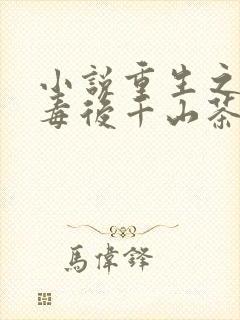 小説重生之
毒後千山茶
馬偉鐸